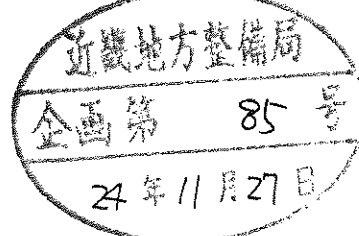 近畿地方整備局
企画第 85 号
24 年 11 月 27 日